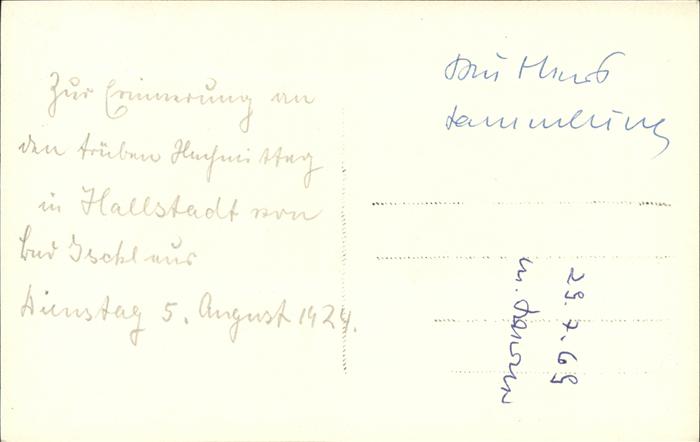 Zur Erinnerung an
den trüben Nachmittag
in Hallstadt von
Bad Ischl aus
Dienstag 5. August 1924.
Sammlung
29.7.69